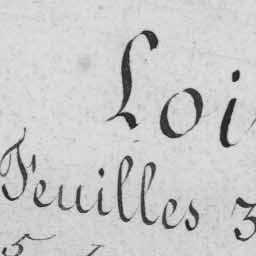 Loi
Feuilles 3
5